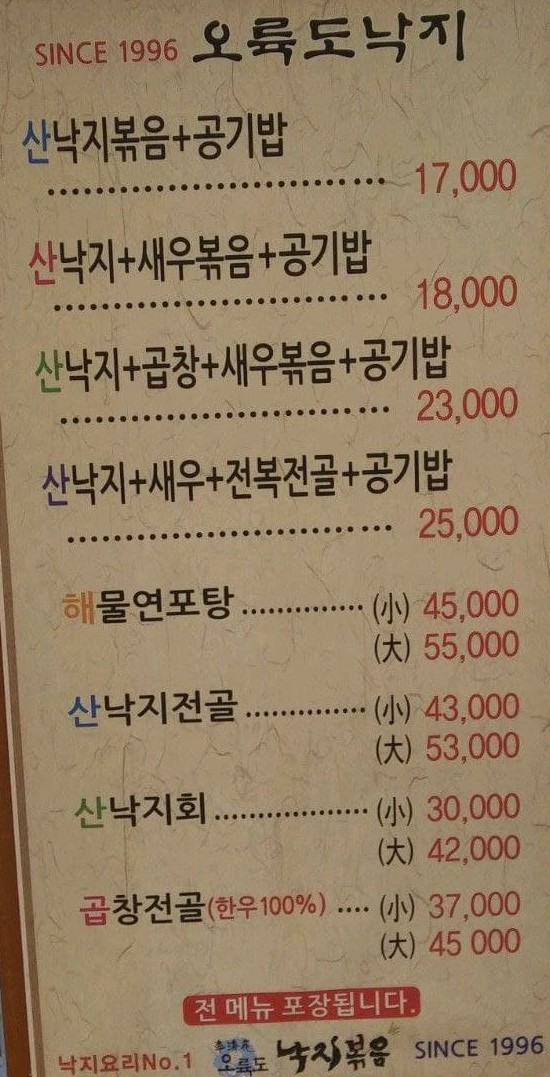 SINCE 1996 오륙도낙지
산낙지볶음+공기밥
........................... 17,000
산낙지+새우볶음+공기밥
........................... 18,000
산낙지+곱창+새우볶음+공기밥
........................... 23,000
산낙지+새우+전복전골+공기밥
........................... 25,000
해물연포탕 .............. (小) 45,000
(大) 55,000
산낙지전골 .............. (小) 43,000
(大) 53,000
산낙지회 .................. (小) 30,000
(大) 42,000
곱창전골(한우100%) .... (小) 37,000
(大) 45 000
전 메뉴 포장됩니다.
낙지요리No.1 오륙도 낙지볶음 SINCE 1996